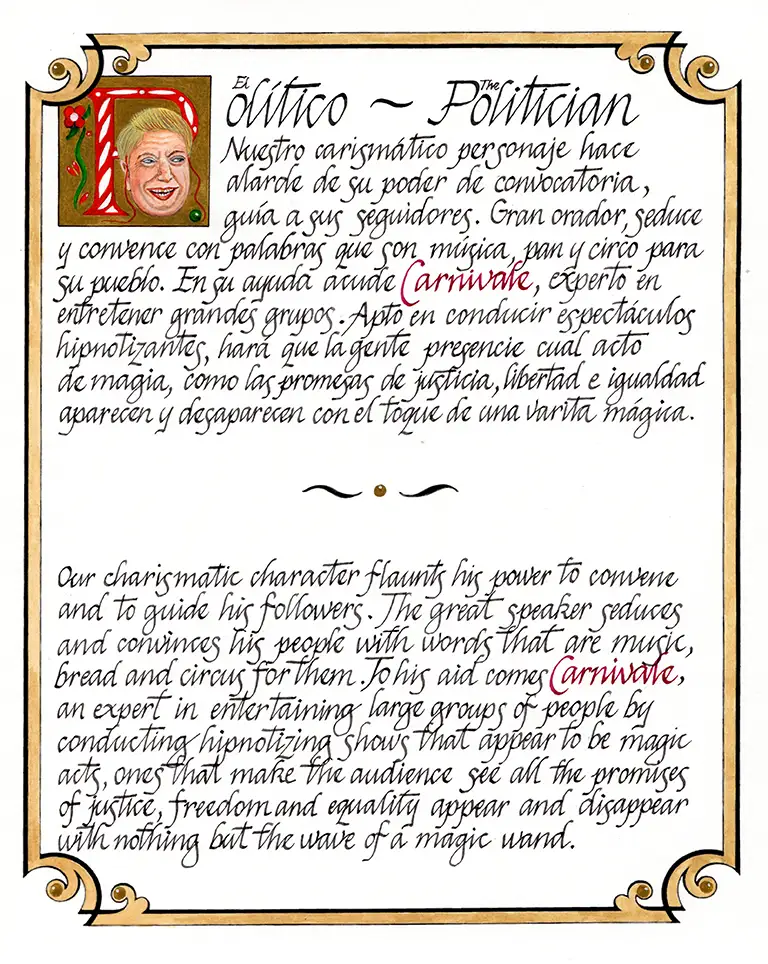 El Político ~ The Politician
Nuestro carismático personaje hace
alarde de su poder de convocatoria,
guía a sus seguidores. Gran orador, seduce
y convence con palabras que son música, pan y circo para
su pueblo. En su ayuda acude Carnivale, experto en
entretener grandes grupos. Apto en conducir espectáculos
hipnotizantes, hará que la gente presencie cual acto
de magia, como las promesas de justicia, libertad e igualdad
aparecen y desaparecen con el toque de una varita mágica.
Our charismatic character flaunts his power to convene
and to guide his followers. The great speaker seduces
and convinces his people with words that are music,
bread and circus for them. To his aid comes Carnivale,
an expert in entertaining large groups of people by
conducting hipnotizing shows that appear to be magic
acts, ones that make the audience see all the promises
of justice, freedom and equality appear and disappear
with nothing but the wave of a magic wand.